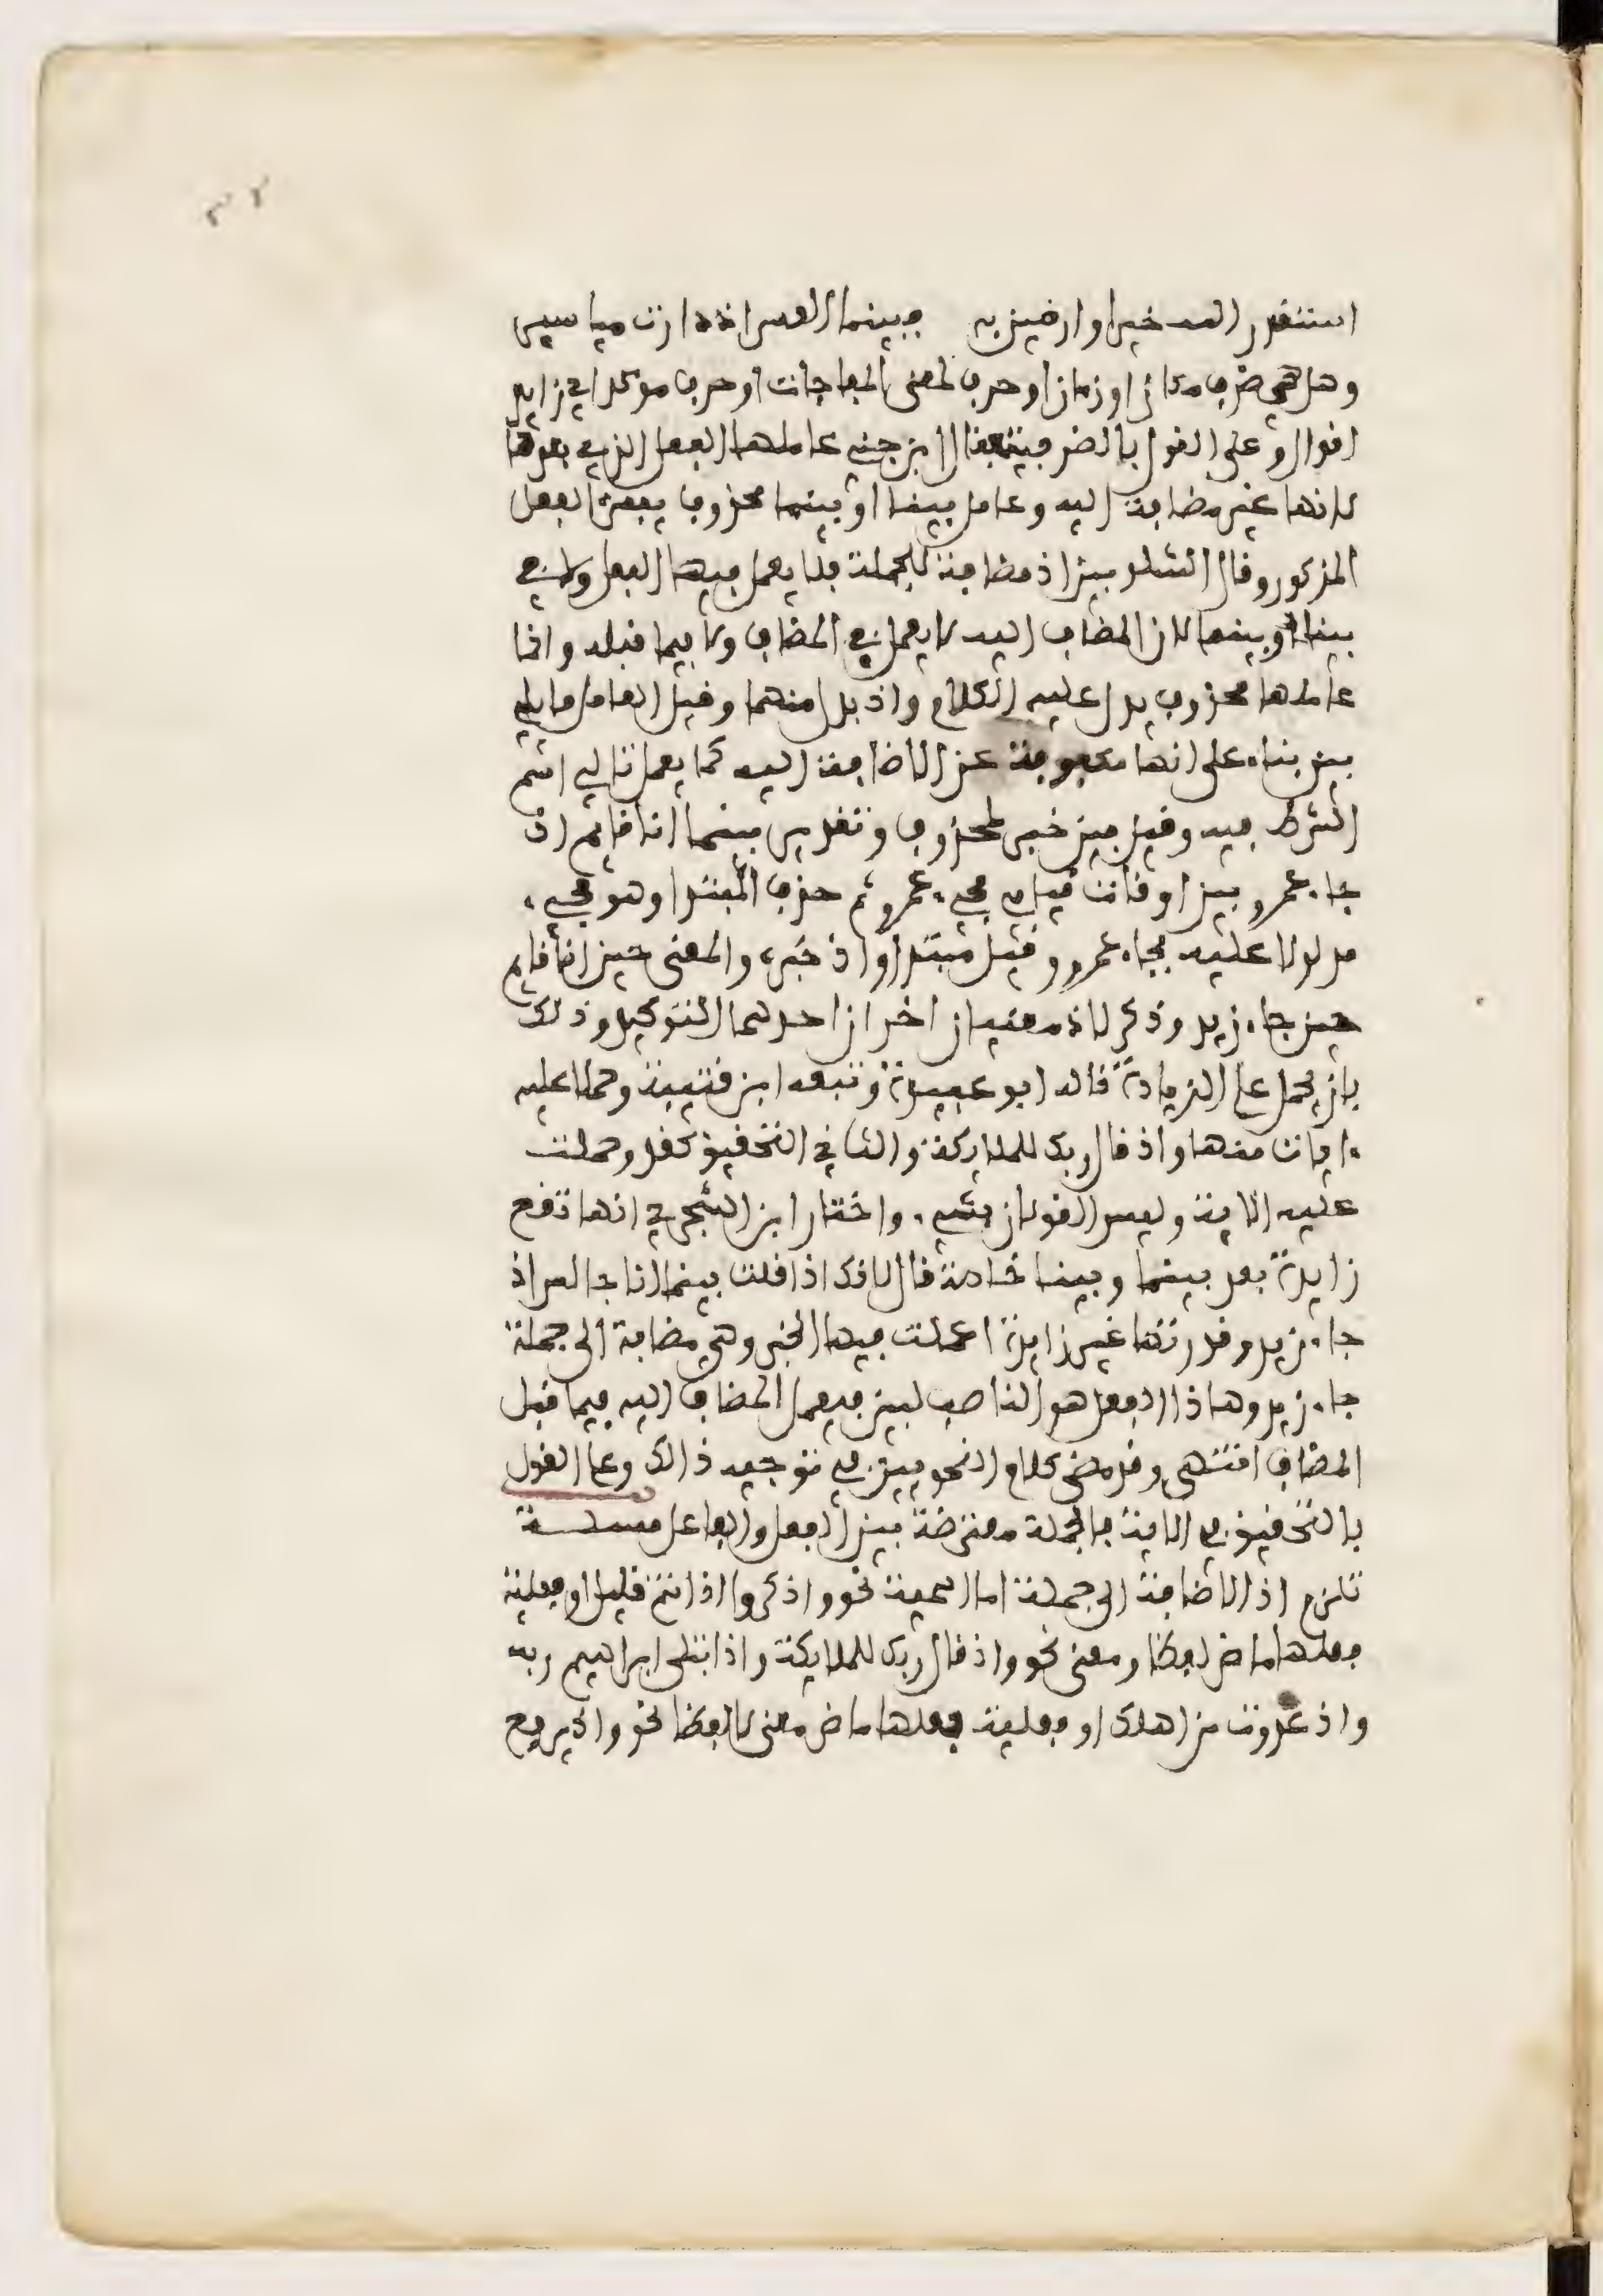 استقدر الله خيرا وارضين به فبينما العسر اذ دارت مياسير
وهل هي ضرف مكان او زمان او حرف لمعنى المفاجات او حرف موكد اي زايد
اقوال وعلى القول بالضرفية فقال ابن جني عاملها الفعل الذي بعدها
لانها غير مضافة اليه وعامل بينا او بينما محذوف يفسره الفعل
المذكور وقال الشلوبين اذ مضافة للجملة فلا يعمل فيها الفعل ولا في
بينا او بينما لان المضاف اليه لا يعمل في المضاف ولا فيما قبله وانما
عاملها محذوف يدل عليه الكلام واذ بدل منهما وقيل العامل ما يلي
بين بناء على انها مكفوفة عن الاضافة اليه كما يعمل تالي اسم
الشرط فيه وقيل بين خبر لمحذوف وتقدير بينما انا قايم اذ
جاء عمرو بين اوقات قيامي مجيء عمرو ثم حذف المبتدا وهو مجيء
مدلولا عليه بجاء عمرو وقيل مبتدا واذ خبره والمعنى حين انا قايم
حين جاء زيد وذكر لاذ معنيان اخران احدهما التوكيد وذلك
بان يحمل على الزيادة قاله ابو عبيدة وتبعه ابن قتيبة وحملا عليه
ءايات منها واذ قال ربك للملايكة والثاني التحقيق كقد وحملت
عليه الاية وليس القولان بشيء واختار ابن الشجري انها تقع
زايدة بعد بينما وبينا خاصة قال لانك اذا قلت بينما انا جالس اذ
جاء زيد وقدرتها غير زايدة اعملت فيها الخبر وهي مضافة الى جملة
جاء زيد وهاذا الفعل هو الناصب لبين فيعمل المضاف اليه فيما قبل
المضاف انتهى وقد مضى كلام النحويين في توجيه ذالك وعلى القول
بالتحقيق في الاية فالجملة معترضة بين الفعل والفاعل مسئلة
تلزم اذ الاضافة الى جملة اما اسمية نحو واذكروا اذ انتم قليل او فعلية
فعلها ماض لفظا ومعنى نحو واذ قال ربك للملايكة واذ ابتلى ابراهيم ربه
واذ غدوت من اهلك او فعلية فعلها ماض معنى لا لفظا نحو واذ يرفع